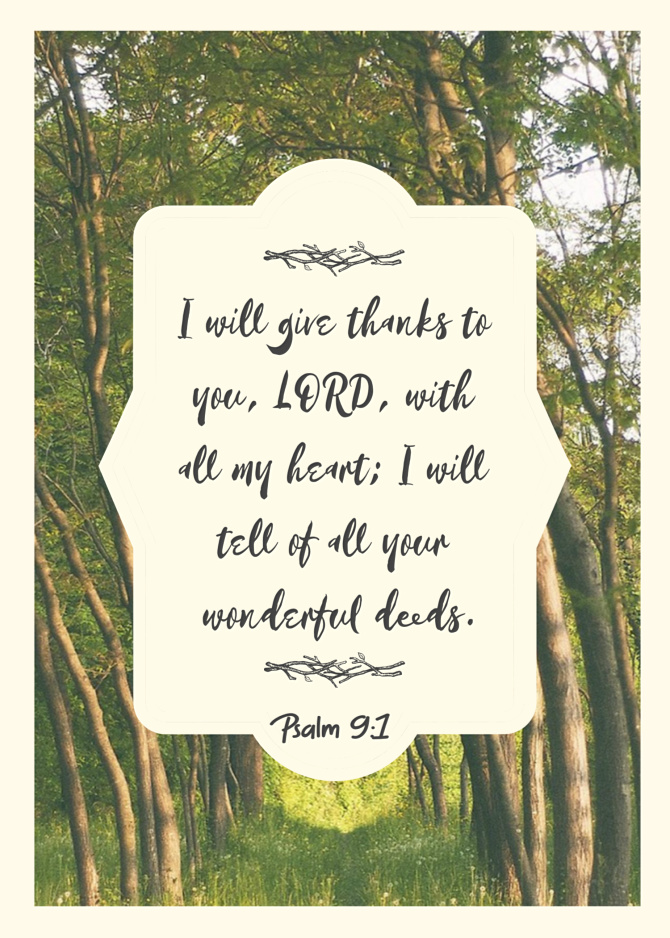 I will give thanks to
you, LORD, with
all my heart; I will
tell of all your
wonderful deeds.
Psalm 9:1